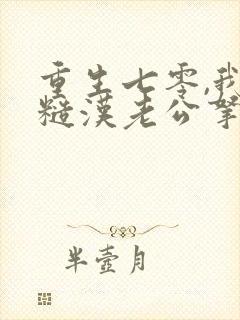 重生七零,我
糙漢老公寵
半壺月